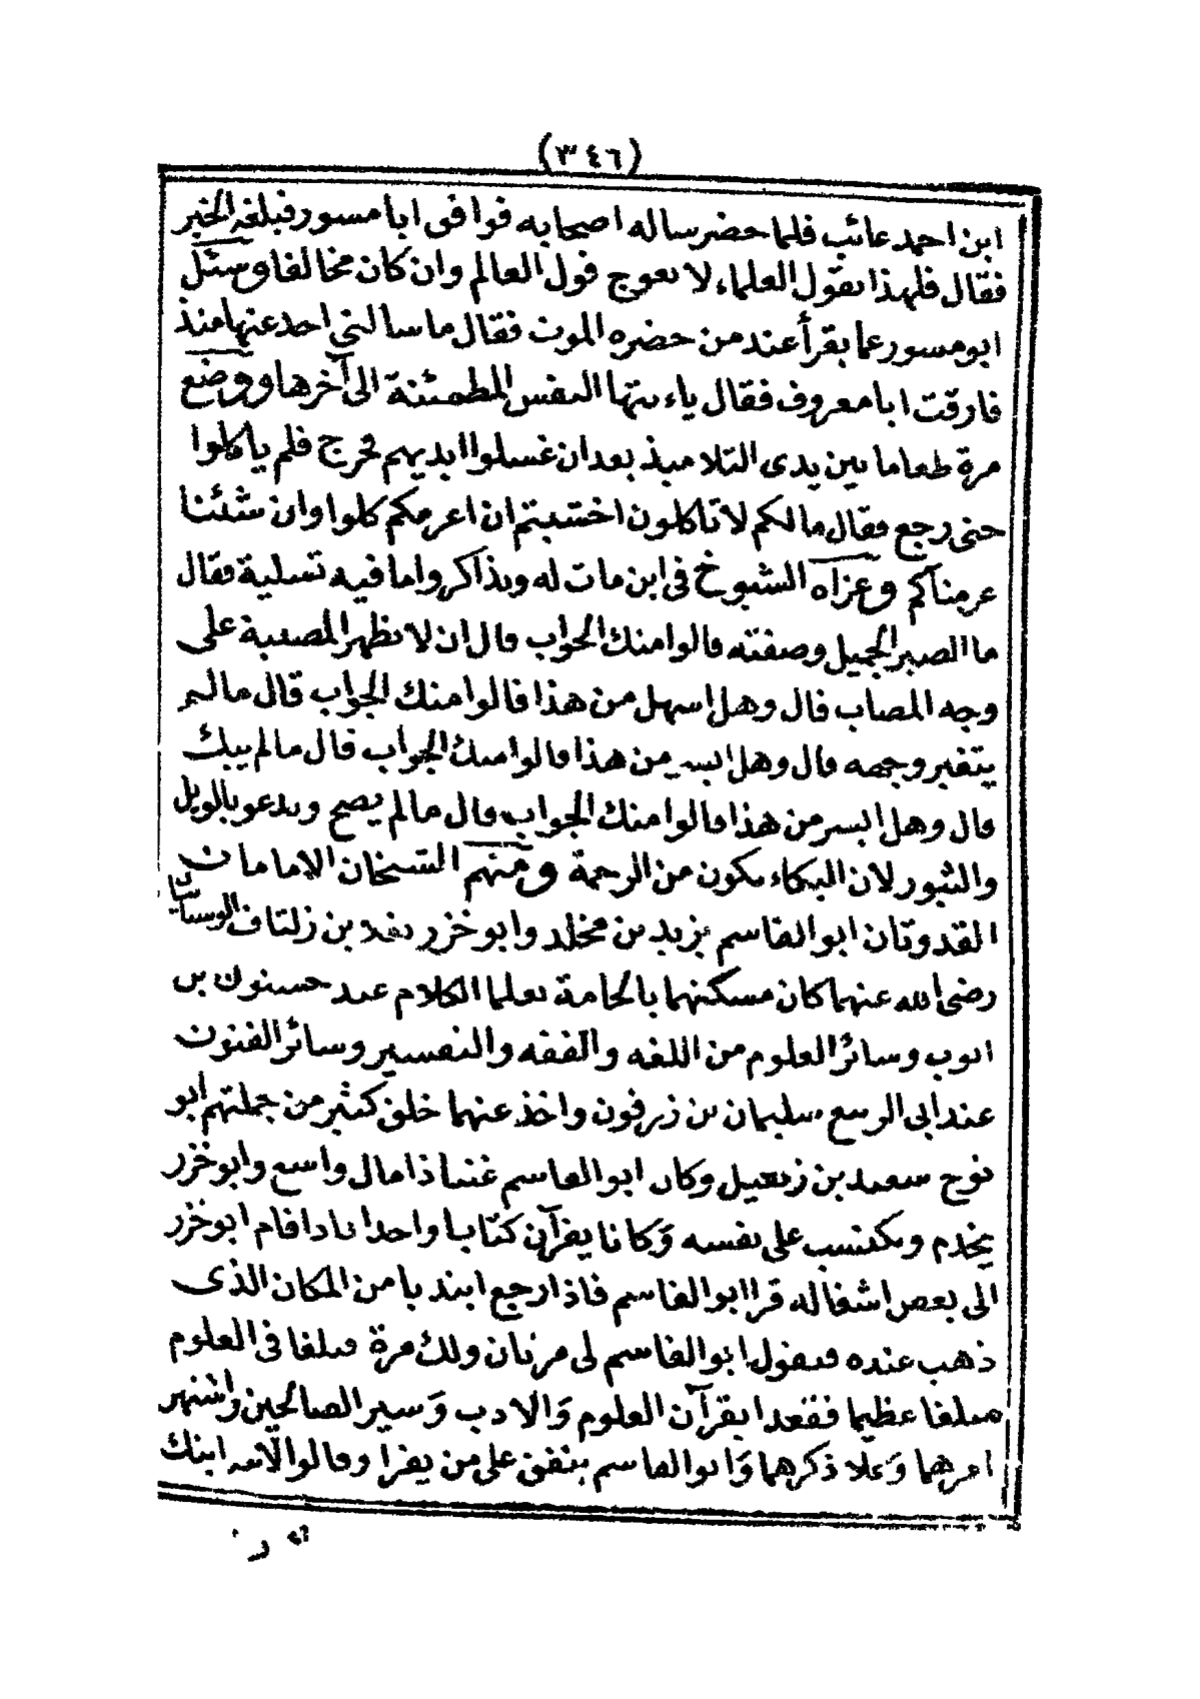 (٣٤٦)
ابن احمد عائب فلما حضر ساله اصحابه فوافق ابا مسور فبلغه الخبر
فقال فلهذا يقول العلماء لا يعوج قول العالم وان كان مخالفا وسئل
ابو مسور عما يقرأ عند من حضره الموت فقال ما سالني احد عنها منذ
فارقت ابا معروف فقال ياءيتها النفس المطمئنة الى آخرها ووضع
مرة طعاما بين يدى التلاميذ بعد ان غسلوا ايديهم فخرج فلم ياكلوا
حتى رجع فقال مالكم لا تاكلون اخشيتم ان اغرمكم كلوا وان شئنا
غرمناكم وعزاه الشيوخ فى ابن مات له وبذاكروا ما فيه تسلية فقال
ما الصبر الجميل وصفته قالوا منك الجواب قال ان لا تظهر المصيبة على
وجه المصاب قال وهل اسهل من هذا قالوا منك الجواب قال ما لم
يتغير وجهه قال وهل ايسر من هذا قالوا منك الجواب قال ما لم يبك
قال وهل ايسر من هذا قالوا منك الجواب قال ما لم يصح ويدعو بالويل
والثبور لان البكاء يكون من الرحمة ومنهم الشيخان الامامان
القدوتان ابو القاسم يزيد بن مخلد وابو خزر يغلا بن زلتاف الوسيانيان
رضى الله عنهما كان مسكنهما بالحامة تعلما الكلام عند حسنوك بن
ايوب وسائر العلوم من اللغه والفقه والتفسير وسائر الفنون
عند ابى الربيع سليمان بن زرفون واخذ عنهما خلق كثير من جملتهم ابو
نوح سعيد بن زنغيل وكان ابو القاسم غنيا ذا مال واسع وابو خزر
يخدم ويكتسب على نفسه وكانا يقرآن كتابا واحدا فاذا قام ابو خزر
الى بعض اشغاله قرا ابو القاسم فاذا رجع ابتديا من المكان الذى
ذهب عنده فيقول ابو القاسم لى مرتان ولك مرة فبلغا فى العلوم
مبلغا عظيما فقعدا يقرآن العلوم والادب وسير الصالحين واشتهر
امرهما وعلا ذكرهما وابو القاسم ينفق على من يقرا وقالوا لامه ابنك